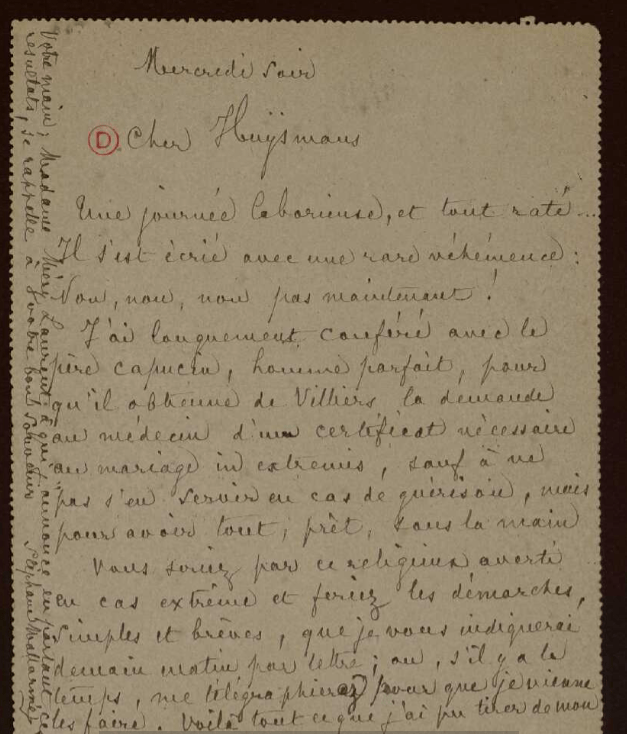 Mercredi soir
D Cher Huÿsmans
Une journée laborieuse, et tout raté...
Il s'est écrié avec une rare véhémence :
Non, non, non pas maintenant !
J'ai longuement conféré avec le
père capucin, homme parfait, pour
qu'il obtienne de Villiers, la demande
au médecin d'un certificat nécessaire
au mariage in extremis, sauf à ne
pas s'en servir en cas de guérison, mais
pour avoir tout, prêt, sous la main
Vous seriez par ce religieux averti
en cas extrême et feriez les démarches,
simples et brèves, que je vous indiquerai
demain matin par lettre ; ou, s'il y a le
temps, me télégraphierez pour que je vienne
les faire. Voilà tout ce que j'ai pu tirer de mon
Votre main ; Madame Méry Laurent à qui j'annonce en partant ces
résultats, se rappelle à votre bon souvenir Stéphane Mallarmé